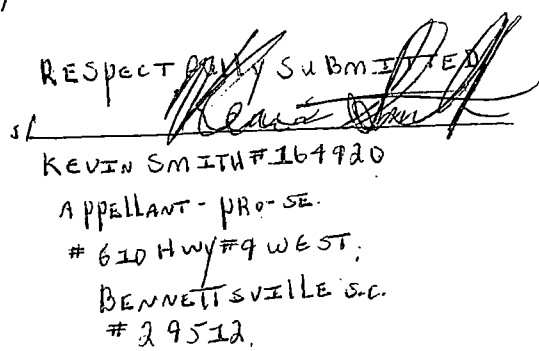 RESPECTFULLY SUBMITTED
s/ Kevin Smith
KEVIN SMITH # 164920
APPELLANT - PRO-SE.
# 610 HWY # 9 WEST,
BENNETTSVILLE S.C.
# 29512.